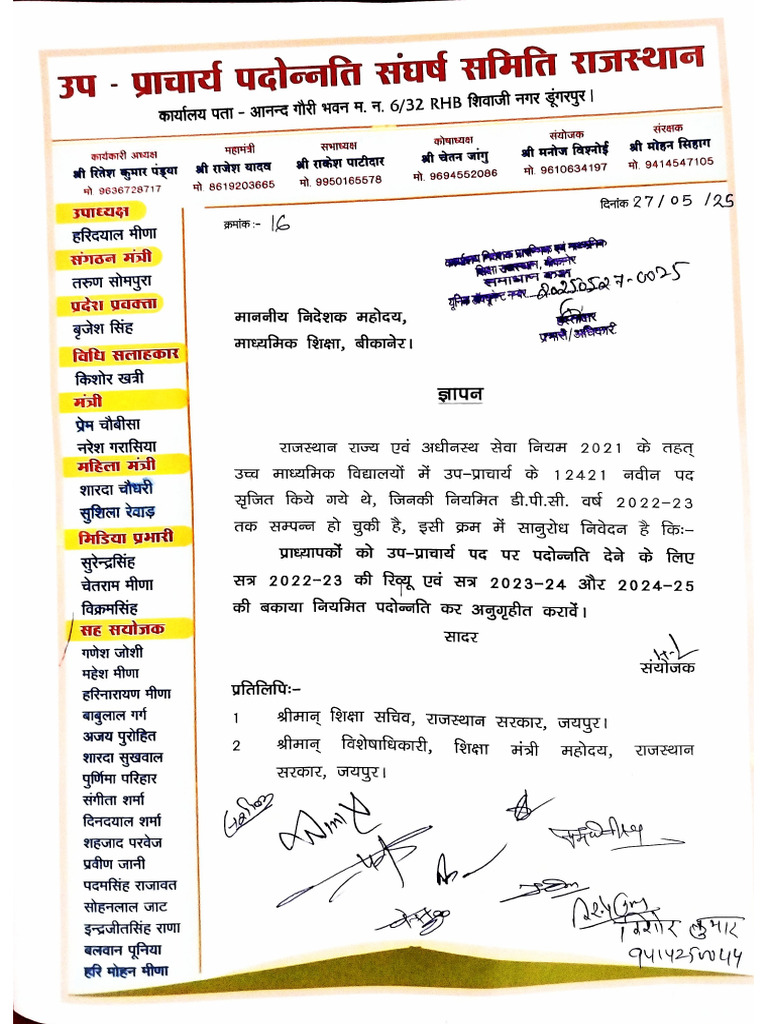 उप - प्राचार्य पदोन्नति संघर्ष समिति राजस्थान
कार्यालय पता - आनन्द गौरी भवन म. न. 6/32 RHB शिवाजी नगर डूंगरपुर।
कार्यकारी अध्यक्ष
श्री रितेश कुमार पंड्या
मो. 9636728717
महामंत्री
श्री राजेश यादव
मो. 8619203665
सभाध्यक्ष
श्री राकेश पाटीदार
मो. 9950165578
कोषाध्यक्ष
श्री चेतन जांगु
मो. 9694552086
संयोजक
श्री मनोज विश्नोई
मो. 9610634197
संरक्षक
श्री मोहन सिहाग
मो. 9414547105
उपाध्यक्ष
हरिदयाल मीणा
संगठन मंत्री
तरुण सोमपुरा
प्रदेश प्रवक्ता
बृजेश सिंह
विधि सलाहकार
किशोर खत्री
मंत्री
प्रेम चौबीसा
नरेश गरासिया
महिला मंत्री
शारदा चौधरी
सुशिला रेवाड़
मिडिया प्रभारी
सुरेन्द्रसिंह
चेतराम मीणा
विक्रमसिंह
सह सयोजक
गणेश जोशी
महेश मीणा
हरिनारायण मीणा
बाबुलाल गर्ग
अजय पुरोहित
शारदा सुखवाल
पुर्णिमा परिहार
संगीता शर्मा
दिनदयाल शर्मा
शहजाद परवेज
प्रवीण जानी
पदमसिंह राजावत
सोहनलाल जाट
इन्द्रजीतसिंह राणा
बलवान पूनिया
हरि मोहन मीणा
क्रमांक :- 16
दिनांक 27/05/25
कार्यालय निदेशक प्रारम्भिक एवं माध्यमिक
शिक्षा राजस्थान, बीकानेर
समाधान कक्ष
20250527-0025
हस्ताक्षर
प्रभारी/अधिकारी
माननीय निदेशक महोदय,
माध्यमिक शिक्षा, बीकानेर।
ज्ञापन
राजस्थान राज्य एवं अधीनस्थ सेवा नियम 2021 के तहत्
उच्च माध्यमिक विद्यालयों में उप-प्राचार्य के 12421 नवीन पद
सृजित किये गये थे, जिनकी नियमित डी.पी.सी. वर्ष 2022-23
तक सम्पन्न हो चुकी है, इसी क्रम में सानुरोध निवेदन है किः-
प्राध्यापकों को उप-प्राचार्य पद पर पदोन्नति देने के लिए
सत्र 2022-23 की रिव्यू एवं सत्र 2023-24 और 2024-25
की बकाया नियमित पदोन्नति कर अनुगृहीत करावें।
सादर
संयोजक
प्रतिलिपिः-
1 श्रीमान् शिक्षा सचिव, राजस्थान सरकार, जयपुर।
2 श्रीमान् विशेषाधिकारी, शिक्षा मंत्री महोदय, राजस्थान
सरकार, जयपुर।
किशोर कुमार
9414250044